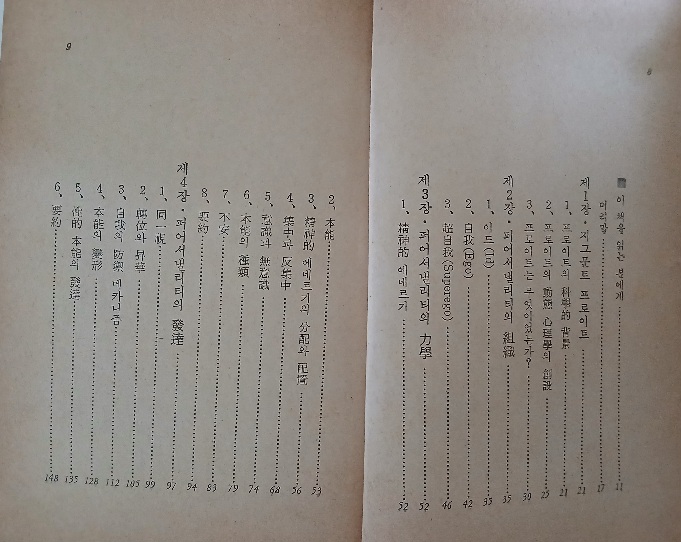 8
이 책을 읽는 분에게 11
머리말 17
제1장·지그문트 프로이트 21
1、프로이트의 科學的 背景 21
2、프로이트의 動態 心理學의 創設 25
3、프로이트는 무엇이었는가? 30
제2장·퍼어서낼리티의 組織 35
1、이드(Id) 35
2、自我(Ego) 42
3、超自我(Superego) 46
제3장·퍼어서낼리티의 力學 52
1、精神的 에네르기 52
9
2、本能 53
3、精神的 에네르기의 分配와 配置 56
4、集中과 反集中 68
5、意識과 無意識 74
6、本能의 種類 79
7、不安 83
8、要約 94
제4장·퍼어서낼리티의 發達 97
1、同一視 99
2、轉位와 昇華 105
3、自我의 防禦 메카니즘 112
4、本能의 變形 128
5、性的 本能의 發達 135
6、要約 148